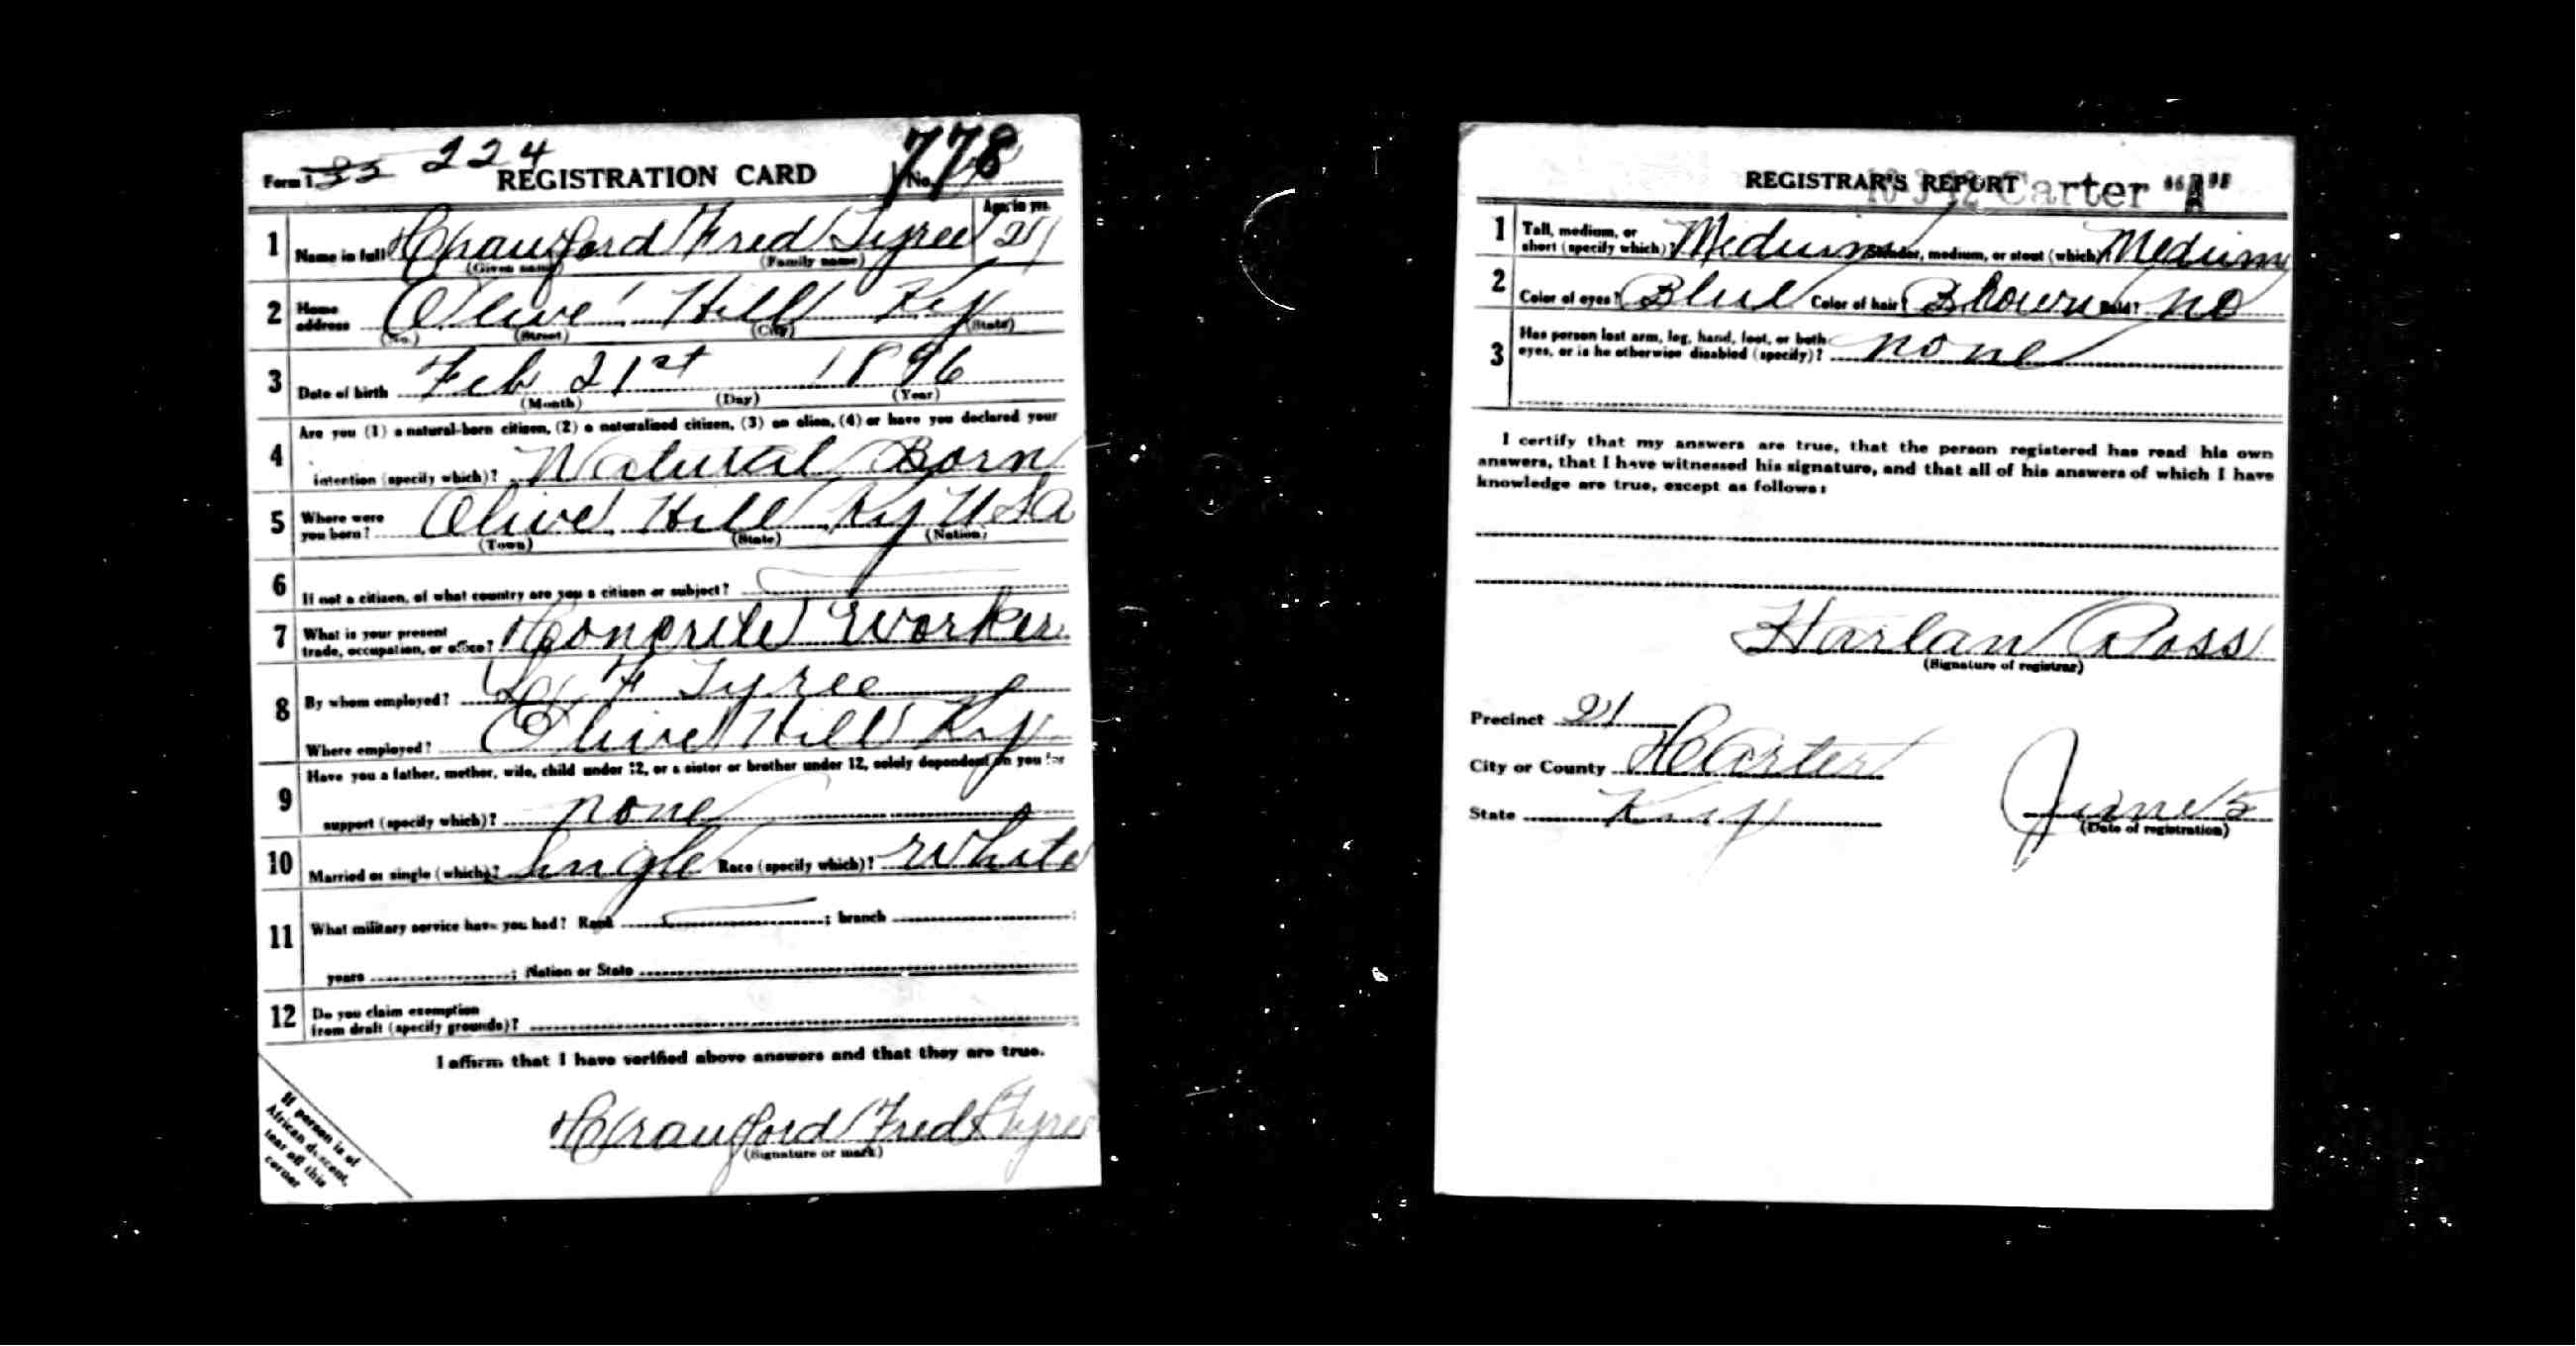 Form 1 35 224 REGISTRATION CARD No. 778
1 Name in full Crawford Fred Tyree Age, in yrs. 21
(Given name) (Family name)
2 Home address Olive Hill Ky
(No.) (Street) (City) (State)
3 Date of birth Feb 21st 1896
(Month) (Day) (Year)
Are you (1) a natural-born citizen, (2) a naturalized citizen, (3) an alien, (4) or have you declared your
4 intention (specify which)? Natural Born
5 Where were you born? Olive Hill Ky USA
(Town) (State) (Nation)
6 If not a citizen, of what country are you a citizen or subject?
7 What is your present trade, occupation, or office? Concrete Worker
8 By whom employed? F Tyree
Where employed? Olive Hill Ky
Have you a father, mother, wife, child under 12, or a sister or brother under 12, solely dependent on you for
9 support (specify which)? none
10 Married or single (which)? Single Race (specify which)? White
11 What military service have you had? Rank ; branch ;
years ; Nation or State
12 Do you claim exemption
from draft (specify grounds)?
I affirm that I have verified above answers and that they are true.
Crawford Fred Tyree
(Signature or mark)
If person is of
African descent,
tear off this
corner
REGISTRAR'S REPORT Carter "A"
1 Tall, medium, or short (specify which)? Medium Slender, medium, or stout (which)? Medium
2 Color of eyes? Blue Color of hair? Brown Bald? no
3 Has person lost arm, leg, hand, foot, or both
eyes, or is he otherwise disabled (specify)? none
I certify that my answers are true, that the person registered has read his own
answers, that I have witnessed his signature, and that all of his answers of which I have
knowledge are true, except as follows:
Harlan Ross
(Signature of registrar)
Precinct 21
City or County Carter
State Ky June 5
(Date of registration)